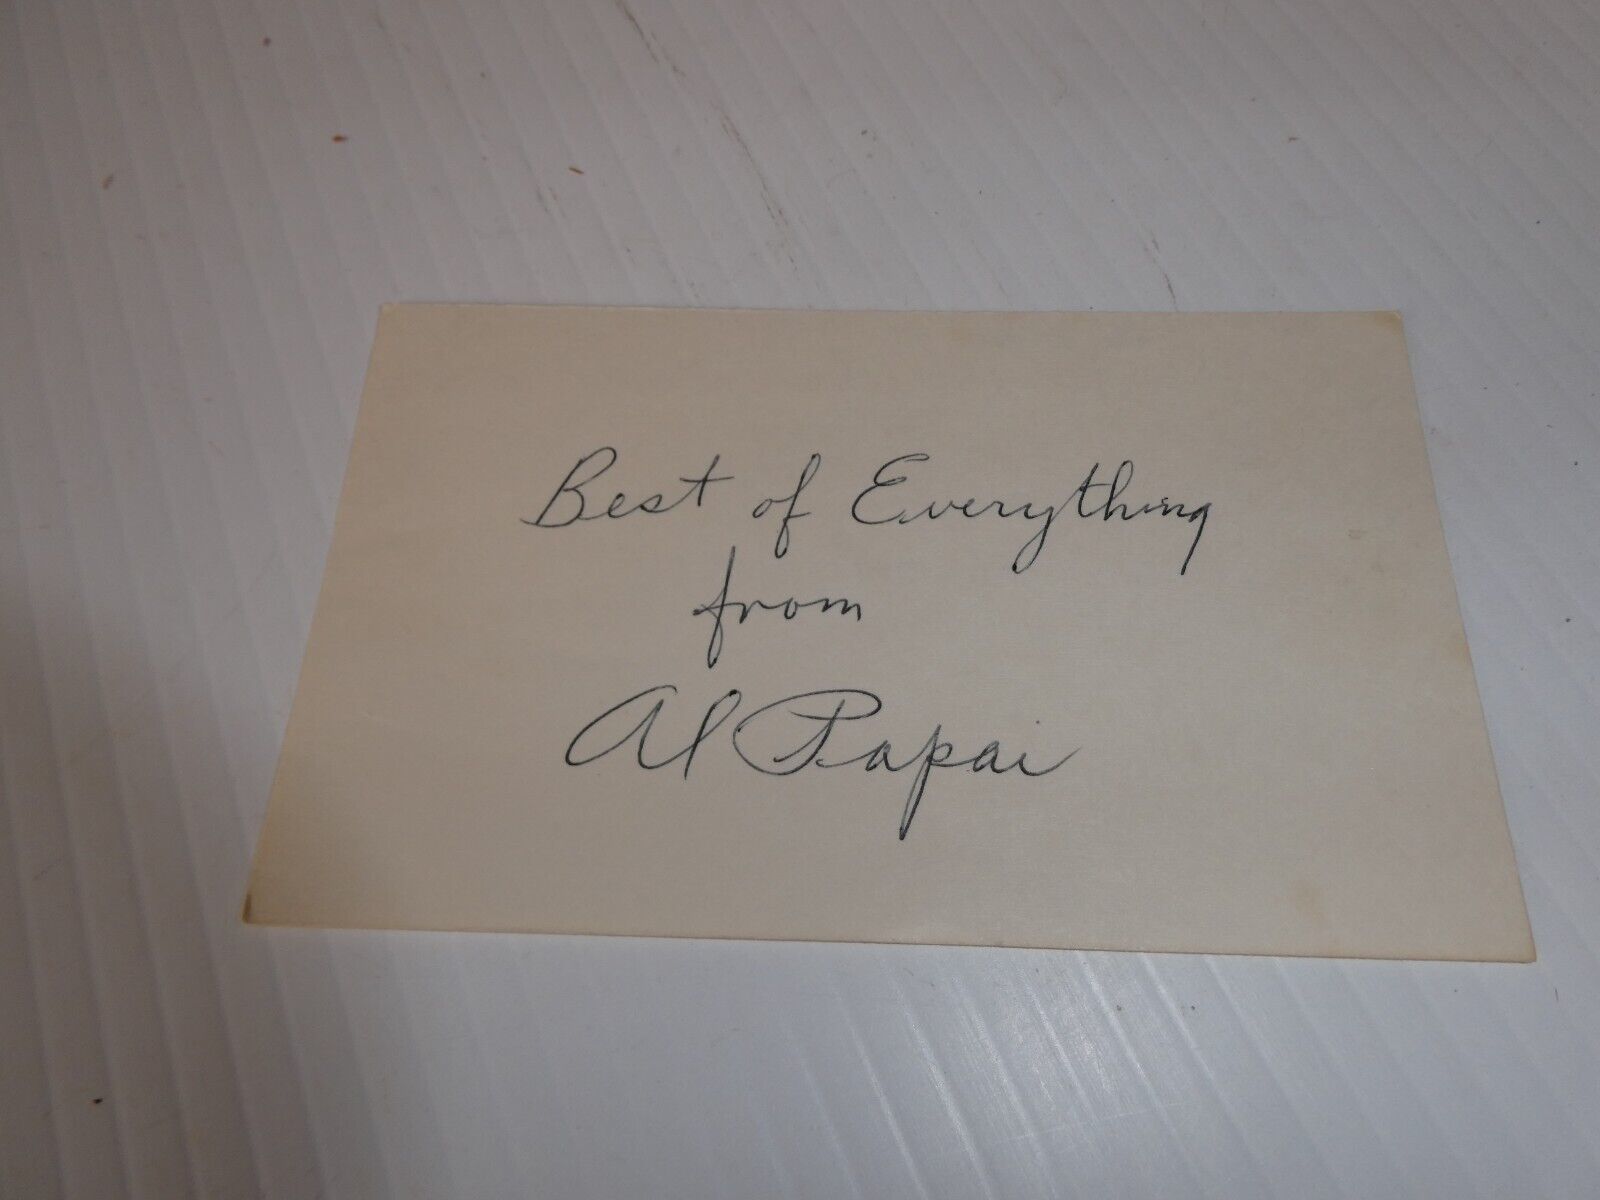 Best of Everything
from
Al Papai